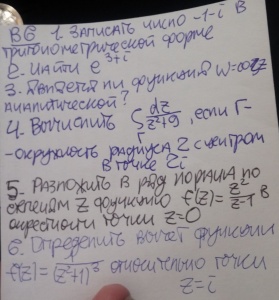 В6 1. Записать число -1-i в
тригонометрической форме
2. Найти e^{3+i}
3. Является ли функция w=cos z
аналитической?
4. Вычислить ∫_Г dz/(z²+9), если Г-
-окружность радиуса 2 с центром
в точке 2i
5- Разложить в ряд Лорана по
степеням z функцию f(z)=z²/(z-1) в
окрестности точки z=0
6. Определить вычет функции
f(z)=1/(z²+1)³ относительно точки
z=i